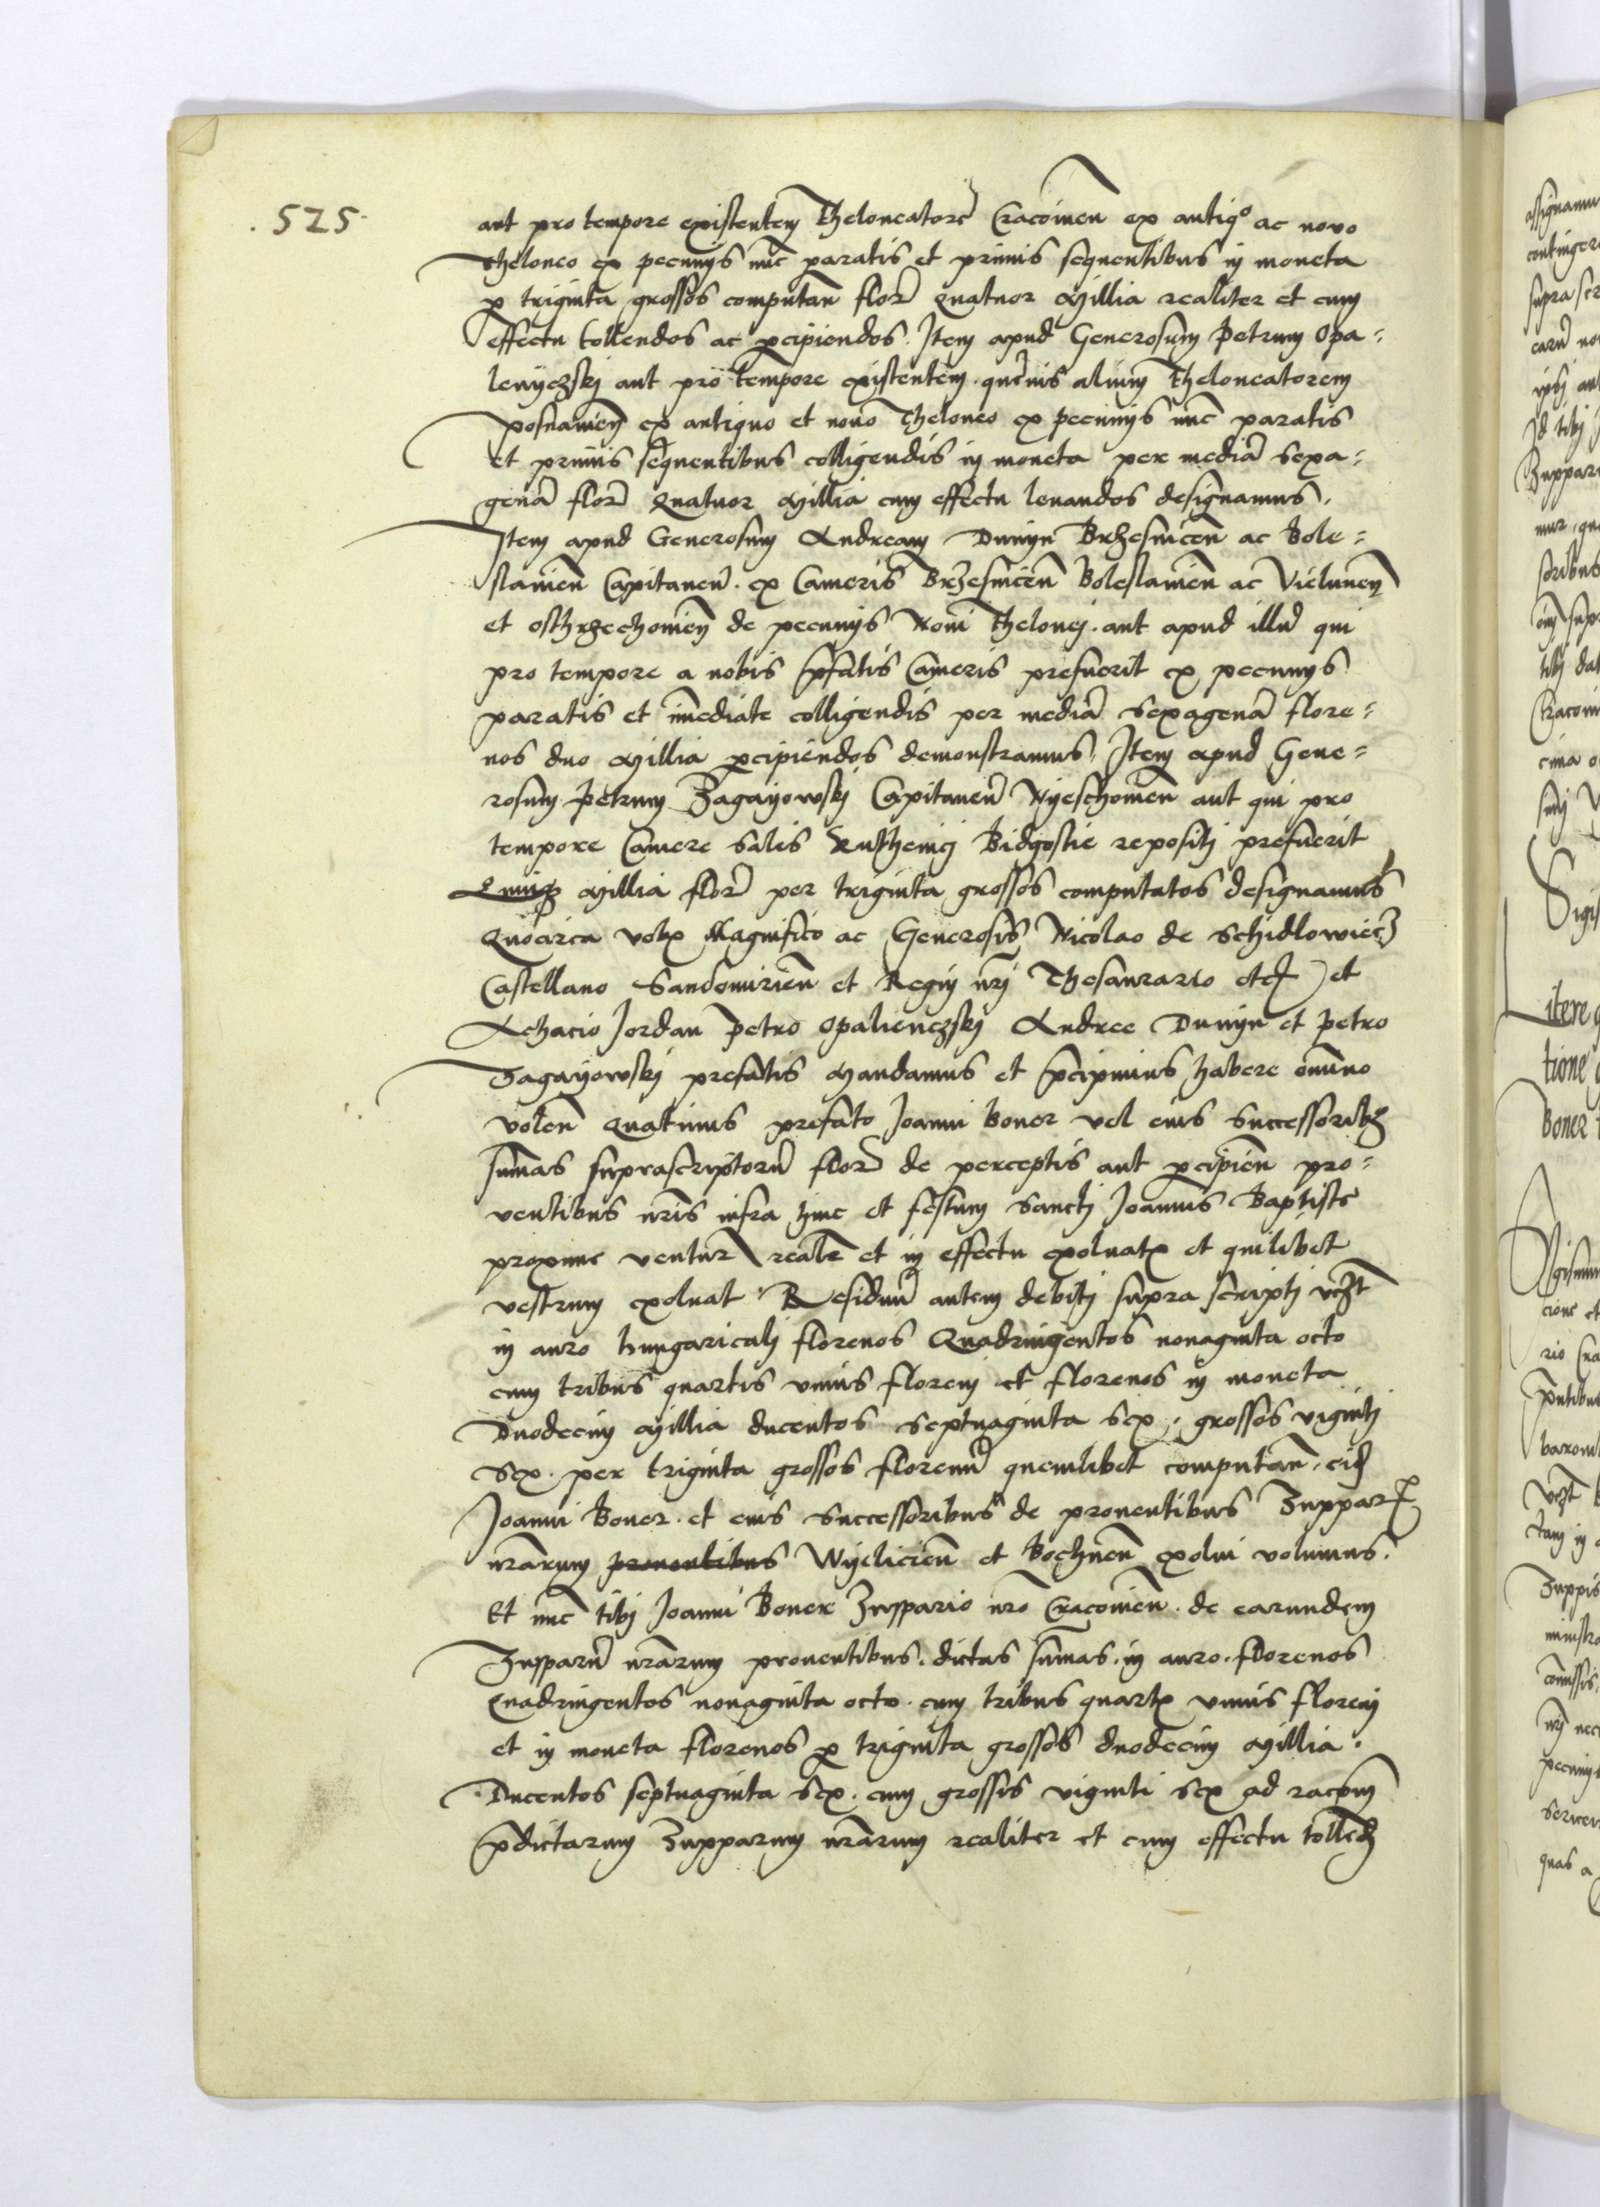 .525.
aut pro tempore existentem Theloneatorē Cracouien ex antiqº ac nouo
theloneo ex pecunijs nūc paratis et primis sequentibus in moneta
ꝑ triginta grossos computan̄ florē Quatuor Millia realiter et cum
effectu tollendos ac ꝑcipiendos. Item apud Generosum Petrum Opa=
lenyczskj aut pro tempore existentem. quēuis alium Theloneatorem
posnanien̄ ex antiquo et nouo theloneo ex pecunijs nūc paratis
et primis sequentibus colligendis in moneta per mediā sexa=
genā florē Quatuor Millia cum effectu leuandos designamus.
Item apud Generosum Andream Dunyn Brzesnicen̄ ac Bole=
slauien̄ Capitaneū. ex Cameris Brzesnicen̄ Boleslauien̄ ac Vielunen̄
et osthrzechouien̄ de pecunijs Noui Thelonej. aut apud illū qui
pro tempore a nobis p̄fatis Cameris prefuerit ex pecunijs
paratis et īmediate colligendis per mediā sexagenā flore=
nos duo Millia ꝑcipiendos demonstramus. Item apud Gene=
rosum Petrum Zagayowskj Capitaneū Nyeschouien̄ aut qui pro
tempore Camere salis Ruthenicj Bidgostie repositj prefuerit
Millia florē per triginta grossos computatos designamus
Quocirca vobꝭ Magnifico ac Generosis Nicolao de Schidlowiecz
Castellano Sandomirien̄ et Regnj nrj Thesaurario etc̄ et
Achacio Jordan Petro Opalienczskj Andree Dunyn et Petro
Zagayowskj prefatis Mandamus et p̄cipimus habere om̄ino
volen̄ Quatinus prefato Joanni Boner vel eius successoribꝫ
sum̄as suprascriptorū florē de perceptis aut ꝑcipien̄ pro=
uentibus nr̄is infra hinc et festum Sanctj Joannis Baptiste
proxime ventur̄ realr̄ et in effectu exoluatꝭ et quilibet
vestrum exoluat. Residuū autem debitj supra scriptj vcꝫt
in auro hungaricalj florenos Quadringentos nonaginta octo
cum tribus quartis vnius florenj et florenos in moneta
Duodecim Millia ducentos septuaginta sex. grossos vigintj
sex. per triginta grossos florenū quemlibet computan̄. eid̄
Joanni Boner. et eius successoribus de prouentibus Zupparꝭ
nr̄arum prouentibus Wyelicien̄ et Bochnen̄ exolui volumus.
Et nūc tibj Joanni Boner Zuppario nr̄o Cracouien̄. de earundem
Zupparū nr̄arum prouentibus. dictas sum̄as. in auro. florenos
Quadringentos nonaginta octo. cum tribus quartꝭ vnius florenj
et in moneta florenos ꝑ triginta grossos duodecim Millia.
Ducentos septuaginta sex. cum grossis viginti sex ad rac̄oem
p̄dictarum Zupparum nr̄arum realiter et cum effectu tollen̄d